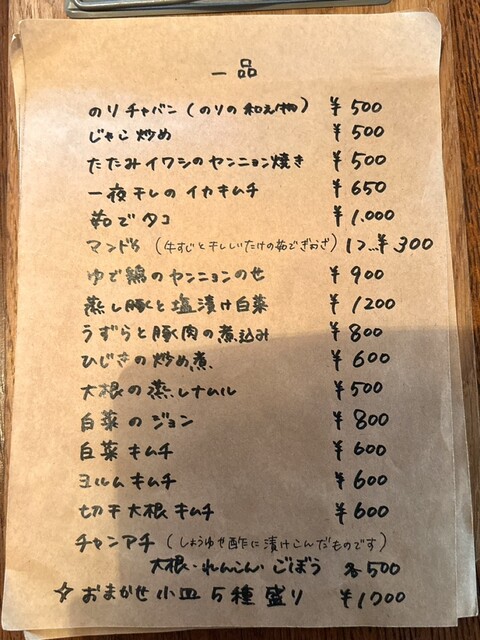 一品
のりチャバン(のりの和え物) ¥500
じゃこ炒め ¥500
たたみイワシのヤンニョン焼き ¥500
一夜干しのイカキムチ ¥650
茹でタコ ¥1.000
マンドゥ (牛すじと干ししいたけの茹でぎょうざ) 1コ..¥300
ゆで鶏のヤンニョンのせ ¥900
蒸し豚と塩漬け白菜 ¥1200
うずらと豚肉の煮込み ¥800
ひじきの炒め煮 ¥600
大根の蒸しナムル ¥500
白菜のジョン ¥800
白菜キムチ ¥600
ヨルムキムチ ¥600
切干大根キムチ ¥600
チャンアチ (しょうゆや酢に漬けこんだものです)
大根・れんこん・ごぼう 各500
☆おまかせ小皿5種盛り ¥1700